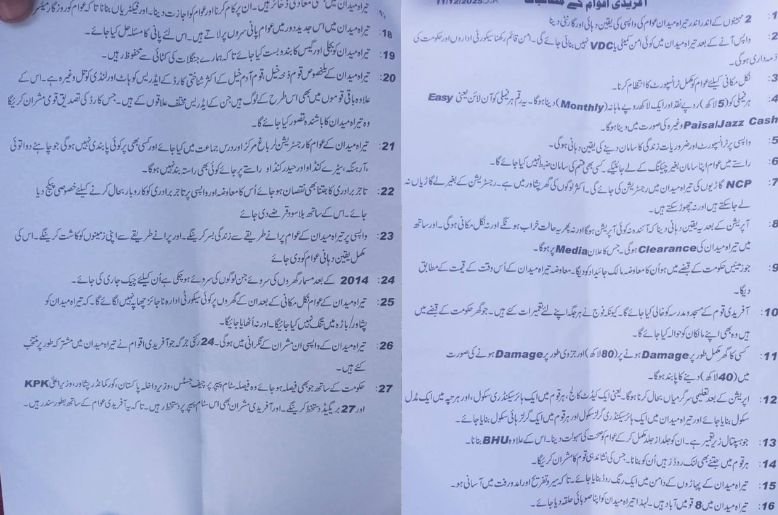 آفریدی اقوام کے مطالبات
11/12/2025
1 : 2 مہینوں کے اندر اندر تیراہ میدان عوام کی واپسی کی یقین دہانی اور گارنٹی دینا
2 : واپس آنے کے بعد تیراہ میدان میں کوئی امن کمیٹی یا VDC نہیں بنائی جائے گی۔ امن قائم رکھنا سیکورٹی اداروں اور حکومت کی
ذمہ داری ہوگی۔
3 : نکل مکانی کیلئے عوام کو مکمل ٹرانسپورٹ کا انتظام کرنا۔
4 : ہر فیملی کو (5 لاکھ) روپے نقد اور ایک لاکھ روپے ماہانہ (Monthly) دینا ہوگا۔ یہ رقم ہر فیملی کو آن لائن یعنی Easy
Paisa/Jazz Cash وغیرہ کی صورت میں دینا ہوگا۔
5 : واپسی پر ٹرانسپورٹ اور ضروریات زندگی کا سامان دینے کی یقین دہانی ہوگی۔
6 : راستے میں عوام اپنا سامان بغیر چیکنگ کے لے جائینگے۔ کسی بھی قسم کی سامان ضبط نہیں کیا جائے گا۔
7 : NCP گاڑیوں کی تیراہ میدان میں رجسٹریشن کی جائے گی۔ اکثر لوگوں کی گھر پشاور میں ہے۔ رجسٹریشن کے بغیر لے گاڑیاں نہ
لے جاسکتے ہیں اور نہ چھوڑ سکتے ہیں۔
8 : آپریشن کے بعد یقین دہانی دینا کہ آئندہ نہ کوئی آپریشن ہوگا اور نہ پھر یہ حالت خراب ہونگے اور نہ نکل مکانی ہوگی۔ اور ساتھ
میں تیراہ میدان کی Clearance ہوگی۔ جس کا اعلان Media پر ہوگا۔
9 : جو زمینیں حکومت کے قبضے میں ہو اُن کا معاوضہ مالک جائیداد کو دیگا۔ معاوضہ تیراہ میدان کے اُس وقت کے قیمت کے مطابق
دیگا۔
10 : آفریدی قوم کے مسجد و مدرسہ کو خالی کیا جائے گا۔ کیونکہ فوج نے ہر جگہ اپنے لئے تعمیرات کئے ہیں۔ جو گھر حکومت کے قبضے میں
ہیں وہ بھی اپنے مالکان کو حوالہ کیا جائے گا۔
11 : کسی کا گھر مکمل طور پر Damage ہونے پر (80 لاکھ) اور جزوی طور پر Damage ہونے کی صورت
میں (40 لاکھ) دینے کا پابند ہوگا۔
12 : اپریشن کے بعد تعلیمی سرگرمیاں بحال کرنا ہوگا۔ یعنی ایک کیڈٹ کالج، ہر قوم میں ایک ہائیر سیکنڈری سکول، اور ہر چپہ میں ایک مڈل
سکول بنایا جائے اور تیراہ میدان میں ایک ہائیر سیکنڈری گرلز سکول اور ہر قوم میں ایک گرلز ہائی سکول بنایا جائے۔
13 : جو ہسپتال زیر تعمیر ہے۔ ان کو جلد از جلد مکمل کر کے عوام کو صحت کی سہولت دینا۔ اس کے علاوہ BHU بنانا۔
14 : ہر قوم میں جتنے بھی لنک روڈز ہیں اُن کو بنانا۔ جس کی نشاندہی قوم کا مشران کریگا۔
15 : تیراہ میدان کے پہاڑوں کے دامن میں ایک رنگ روڈ بنایا جائے۔ تاکہ سیر و تفریح اور آمدورفت میں آسانی ہو۔
16 : تیراہ میدان میں 8 قومیں آباد ہیں۔ لہٰذا تیراہ میدان کو اپنا صوبائی حلقہ دیا جائے۔
تیراہ میدان میں معدنی ذخائر ہیں۔ ان پر کام کرنا اور عوام کو اجازت دینا۔ اور فیکٹریاں بنانا تاکہ عوام کو روزگار میسر
18 : تیراہ میدان میں اس جدید دور میں عوام پانی سروں پر لاتے ہیں۔ اس لئے پانی کا مسئلہ حل کیا جائے۔
19 : تیراہ میدان کو بجلی اور گیس کا بندوبست کیا جائے تاکہ ہمارے جنگلات کی کٹائی سے محفوظ رہیں۔
20 : تیراہ میدان کے مخصوص قوم ذخہ خیل، قوم آدم خیل کے اکثر شناختی کارڈ کے ایڈریس کوہاٹ اور لنڈی کوتل وغیرہ ہے۔ اس کے
علاوہ باقی قوموں میں بھی اس طرح کے لوگ ہیں جن کے ایڈریس مختلف علاقوں کے ہیں۔ جس کارڈ کی تصدیق قومی مشران کریگا
وہ تیراہ میدان کا باشندہ تصور کیا جائے گا۔
21 : تیراہ میدان کے عوام کا رجسٹریشن لر باغ مرکز اور درس جماعت میں کیا جائے اور کسی بھی پر کوئی پابندی نہیں ہوگی جو چاہے دوا توئی
، آرہنگہ، سیڑے کنڈاو اور حیدر کنڈاو راستے پر جائے کوئی بھی راستہ بند نہیں ہوگا۔
22 : تاجر برادری کا جتنا بھی نقصان ہو جائے اُس کا معاوضہ اور واپسی پر تاجر برادری کو کاروبار بحال کرنے کیلئے خصوصی پیکیج دیا
جائے۔ اس کے ساتھ بلا سود قرضے دی جائے
23 : واپسی پر تیراہ میدان کے عوام پرانے طریقے سے زندگی بسر کرینگے۔ اور پرانے طریقے سے اپنی زمینوں کو کاشت کرینگے۔ اس کی
مکمل یقین دہانی عوام کو دی جائے
24 : 2014 کے بعد مسمار گھروں کی سروے جن لوگوں کی سروے ہوچکی ہے اُن کیلئے چیک جاری کی جائے۔
25 : تیراہ میدان کے عوام نکل مکانی کے بعد ان کے گھروں پر کوئی سیکورٹی ادارہ ناجائز چھاپہ نہیں لگائے گا۔ کہ تیراہ میدان کو
پشاور/باڑہ میں تنگ نہیں کیا جائیگا۔ اور نہ اُٹھایا جائیگا۔
26 : تیراہ میدان کے واپسی ان مشران کے نگرانی میں ہوگی۔ 24 رکنی جرگہ جو آفریدی اقوام نے تیراہ میدان میں مشترکہ طور پر منتخب
کئے ہیں۔
27 : حکومت کے ساتھ جو بھی فیصلہ ہو جائے وہ فیصلہ سٹام پیپر پر چیف جسٹس، وزیر داخلہ پاکستان، کور کمانڈر پشاور، وزیر اعلیٰ KPK
اور 27 بریگیڈ دستخط کرینگے۔ اور آفریدی مشران بھی اس سٹام پیپر پر دستخط رہیں۔ تاکہ یہ آفریدی عوام کے ساتھ بطور سند رہیں۔